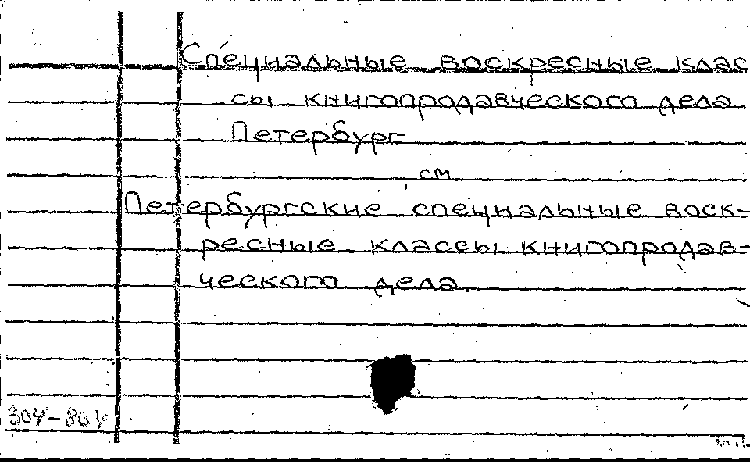 Специальные воскресные клас
сы книгопродавческого дела
Петербург
см
Петербургские специальные воск-
ресные классы книгопродав-
ческого дела